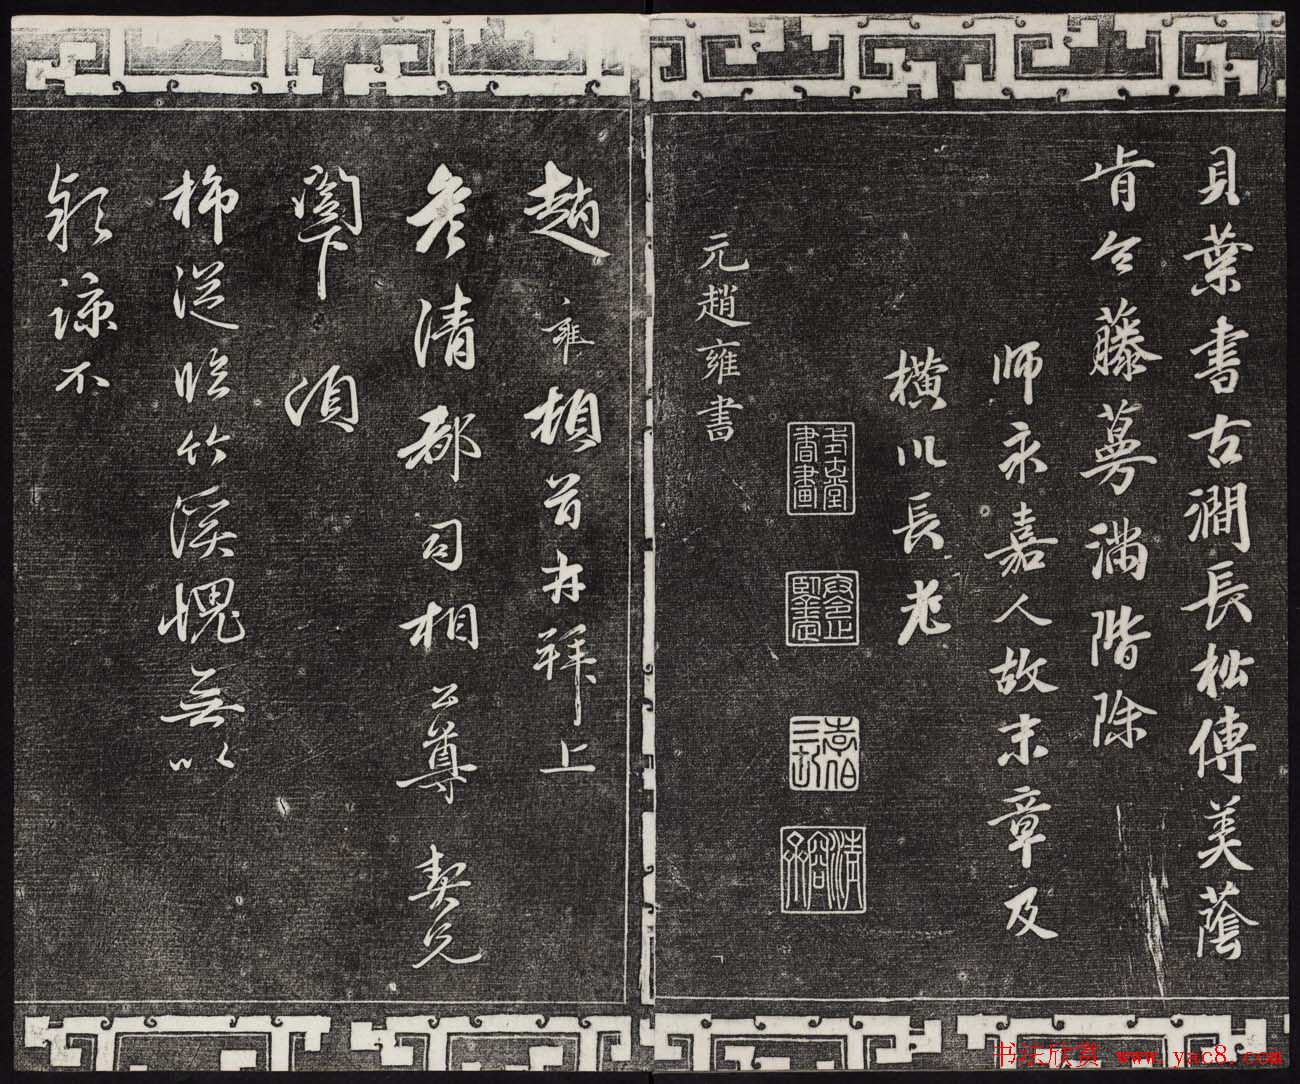 貝葉書古澗長松傳美蔭
肯令藤蔓滿階除
師永嘉人故末章及
橫川長老
元趙雍書
趙雍頓首再拜上
彥清都司相公尊契兄
閣下須
柿從臨竹溪愧無以
領諒不
书法欣赏 www.yac8.com